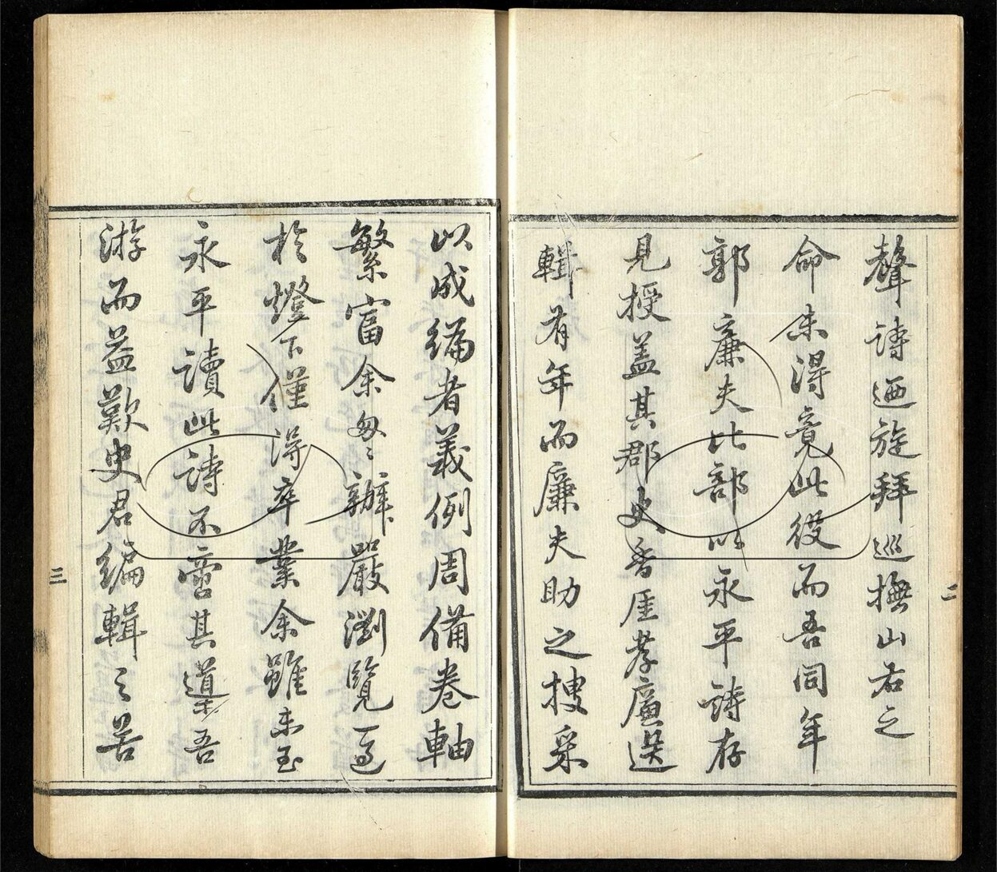 聲詩迺旋拜巡撫山右之
命未得竟此役而吾同年
郭廉夫比部以永平詩存
見授盖其郡史香厓孝廉選
輯有年而廉夫助之搜采
二
以成編者義例周備卷軸
繁富余匆匆辦嚴瀏覽一過
於燈下僅得卒業余雖未至
永平讀此詩不啻其導吾
游而益歎史君編輯之苦
三